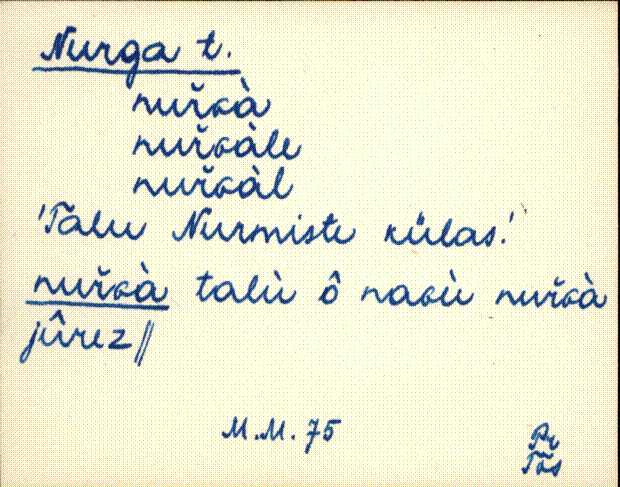 Nurga t.
nuřɢà
nuřɢàle
nuřɢàl
'Talu Nurmiste külas.'
nuřɢà talù ô naɢù nuřɢà
jûrez//
M.M. 75
Pr
Tõs